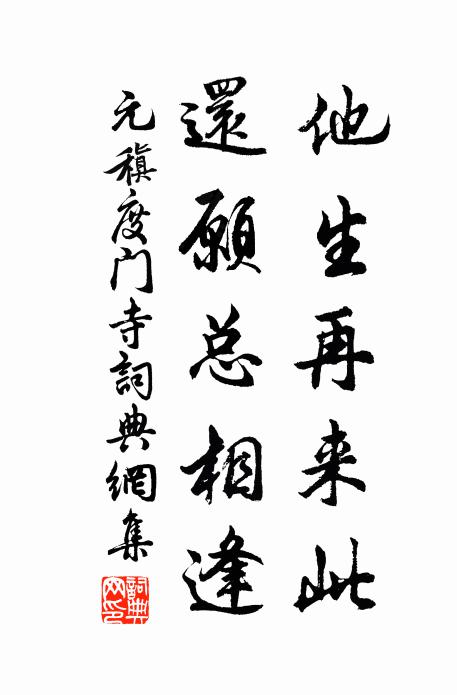 他生再来此
還願总相逢
元稹度门寺詞典網集
詞典網印